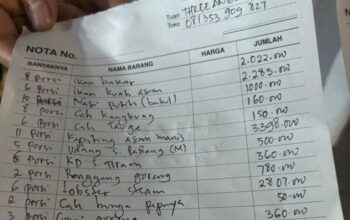 Tuan
Toko
081353 909 827
NOTA No.
BANYAKNYA NAMA BARANG HARGA JUMLAH
8 porsi Ikan bakar 2.022.000
6 porsi Ikan kuah asam 2.285.000
10 porsi Nasi putih (bakul) 1000.000
8 porsi Cah kangkung 160.000
6 porsi Cah Tauge 150.000
11 porsi Kepiting asam manis 3390.000
5 porsi Udang S. Padang (M) 500.000
porsi KD S. Tiram 360.000
2 porsi goreng 780.000
6 porsi Lobster steam 2807.000
2 porsi Cah bunga pepaya 50.000
3 360.000